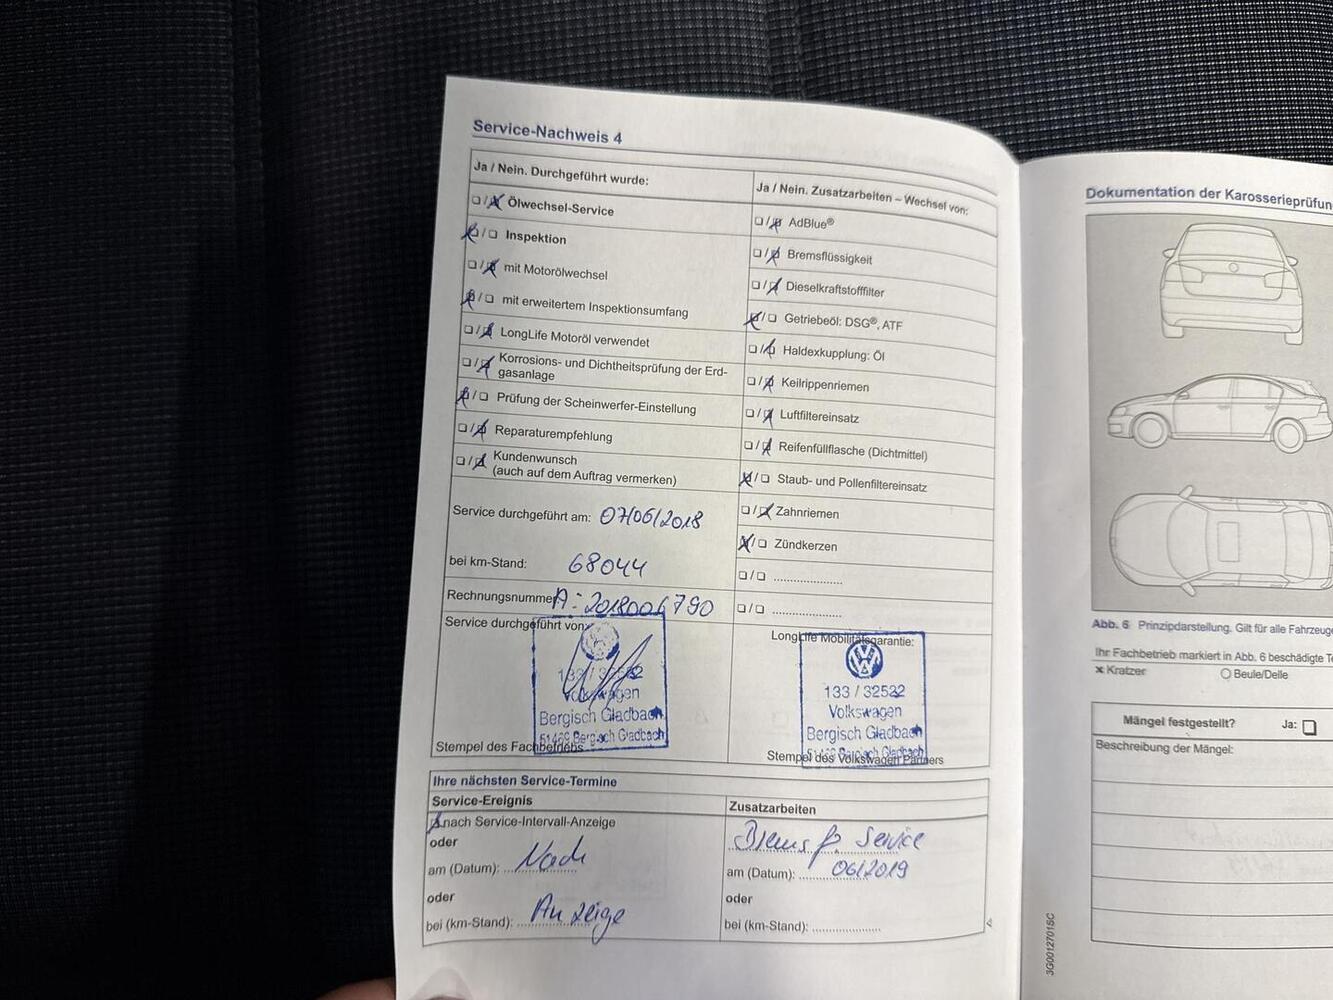 Service-Nachweis 4
Ja / Nein. Durchgeführt wurde:
❏/❏ Ölwechsel-Service
❏/❏ Inspektion
❏/❏ mit Motorölwechsel
❏/❏ mit erweitertem Inspektionsumfang
❏/❏ LongLife Motoröl verwendet
❏/❏ Korrosions- und Dichtheitsprüfung der Erd-
gasanlage
❏/❏ Prüfung der Scheinwerfer-Einstellung
❏/❏ Reparaturempfehlung
❏/❏ Kundenwunsch
(auch auf dem Auftrag vermerken)
Service durchgeführt am: 07/06/2018
bei km-Stand: 68044
Rechnungsnummer A: 2018006790
Service durchgeführt von:
133 / 32522
Volkswagen
Bergisch Gladbach
51469 Bergisch Gladbach
Stempel des Fachbetriebs
Ja / Nein. Zusatzarbeiten – Wechsel von:
❏/❏ AdBlue®
❏/❏ Bremsflüssigkeit
❏/❏ Dieselkraftstofffilter
❏/❏ Getriebeöl: DSG®, ATF
❏/❏ Haldexkupplung: Öl
❏/❏ Keilrippenriemen
❏/❏ Luftfiltereinsatz
❏/❏ Reifenfüllflasche (Dichtmittel)
❏/❏ Staub- und Pollenfiltereinsatz
❏/❏ Zahnriemen
❏/❏ Zündkerzen
❏/❏ ......................
❏/❏ ......................
LongLife Mobilitätsgarantie:
133 / 32522
Volkswagen
Bergisch Gladbach
51469 Bergisch Gladbach
Stempel des Volkswagen Partners
Ihre nächsten Service-Termine
Service-Ereignis
❏ nach Service-Intervall-Anzeige
oder
am (Datum): Nach
oder
bei (km-Stand): Anzeige
Zusatzarbeiten
Bremsfl. Service
am (Datum): 06/2019
oder
bei (km-Stand): ......................
Dokumentation der Karosserieprüfun
Abb. 6 Prinzipdarstellung. Gilt für alle Fahrzeuge
Ihr Fachbetrieb markiert in Abb. 6 beschädigte Te
× Kratzer ○ Beule/Delle
Mängel festgestellt? Ja: ❏
Beschreibung der Mängel:
3G0012701SC